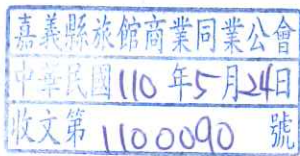 嘉義縣旅館商業同業公會
中華民國110年5月24日
收文第1100090號